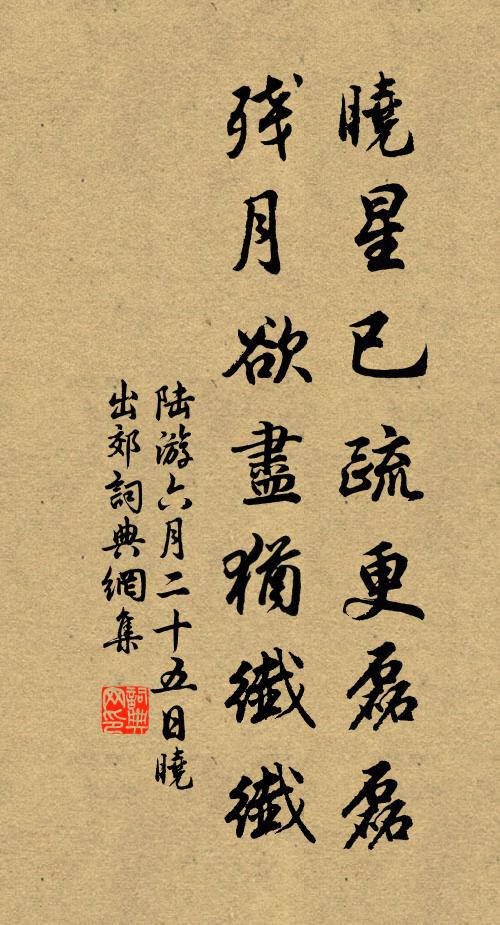 曉星已疏更磊磊
残月欲盡猶纖纖
陆游六月二十五日曉
出郊詞典網集
詞典网印